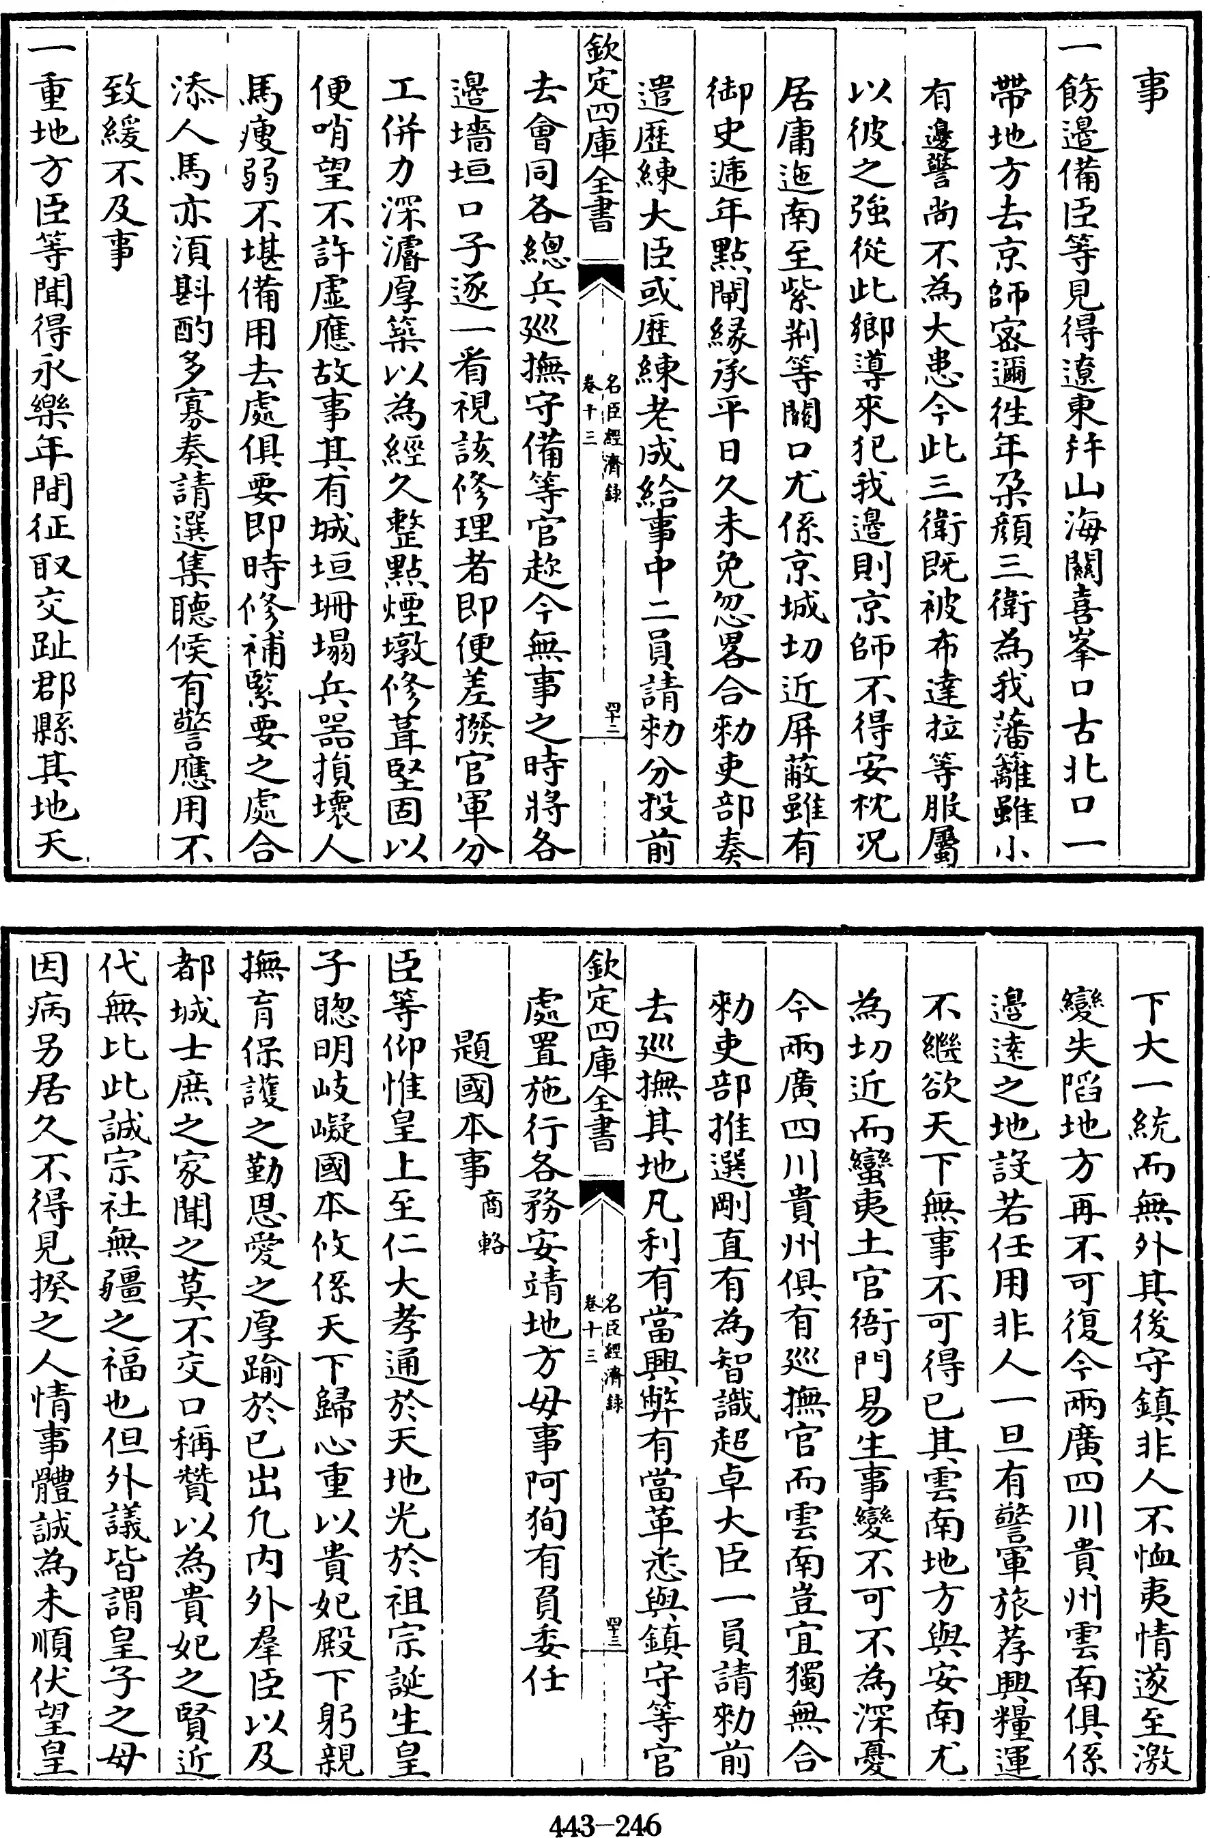 事
一飭邊備臣等見得遼東幷山海關喜峯口古北口一
帶地方去京師宻邇徃年朶顔三衛為我藩籬雖小
有邊警尚不為大患今此三衛既被布達拉等服屬
以彼之強從此鄉導來犯我邊則京師不得安枕况
居庸迤南至紫荆等關口尤係京城切近屏蔽雖有
御史逓年㸃閘縁承平日久未免忽畧合勅吏部奏
遣歴練大臣或歴練老成給事中二員請勅分投前
欽定四庫全書
名臣經濟録
卷十三
罕二
去會同各總兵廵撫守備等官趂今無事之時將各
邉墻垣口子逐一看視該修理者即便差撥官軍分
工併力深濬厚築以為經久整㸃煙墩修葺堅固以
便哨望不許虛應故事其有城垣坍塌兵器損壞人
馬瘦弱不堪備用去處俱要即時修補緊要之處合
添人馬亦湏斟酌多寡奏請選集聽候有警應用不
致緩不及事
一重地方臣等聞得永樂年間征取交趾郡縣其地天
下大一統而無外其後守鎮非人不恤夷情遂至激
變失䧟地方再不可復今兩廣四川貴州雲南俱係
邉逺之地設若任用非人一旦有警軍旅荐興糧運
不繼欲天下無事不可得已其雲南地方與安南尤
為切近而蠻夷土官衙門易生事變不可不為深憂
今兩廣四川貴州俱有廵撫官而雲南豈宜獨無合
勅吏部推選剛直有為智識超卓大臣一員請勅前
去廵撫其地凡利有當興弊有當革悉與鎮守等官
欽定四庫全書
名臣經濟録
卷十三
罕三
處置施行各務安靖地方毋事阿狥有負委任
題國本事 商輅
臣等仰惟皇上至仁大孝通於天地光於祖宗誕生皇
子聰明岐嶷國本攸係天下歸心重以貴妃殿下躬親
撫育保護之勤恩愛之厚踰於已出凡内外羣臣以及
都城士庶之家聞之莫不交口稱贊以為貴妃之賢近
代無比此誠宗社無疆之福也但外議皆謂皇子之母
因病另居久不得見揆之人情事體誠為未順伏望皇
443-246